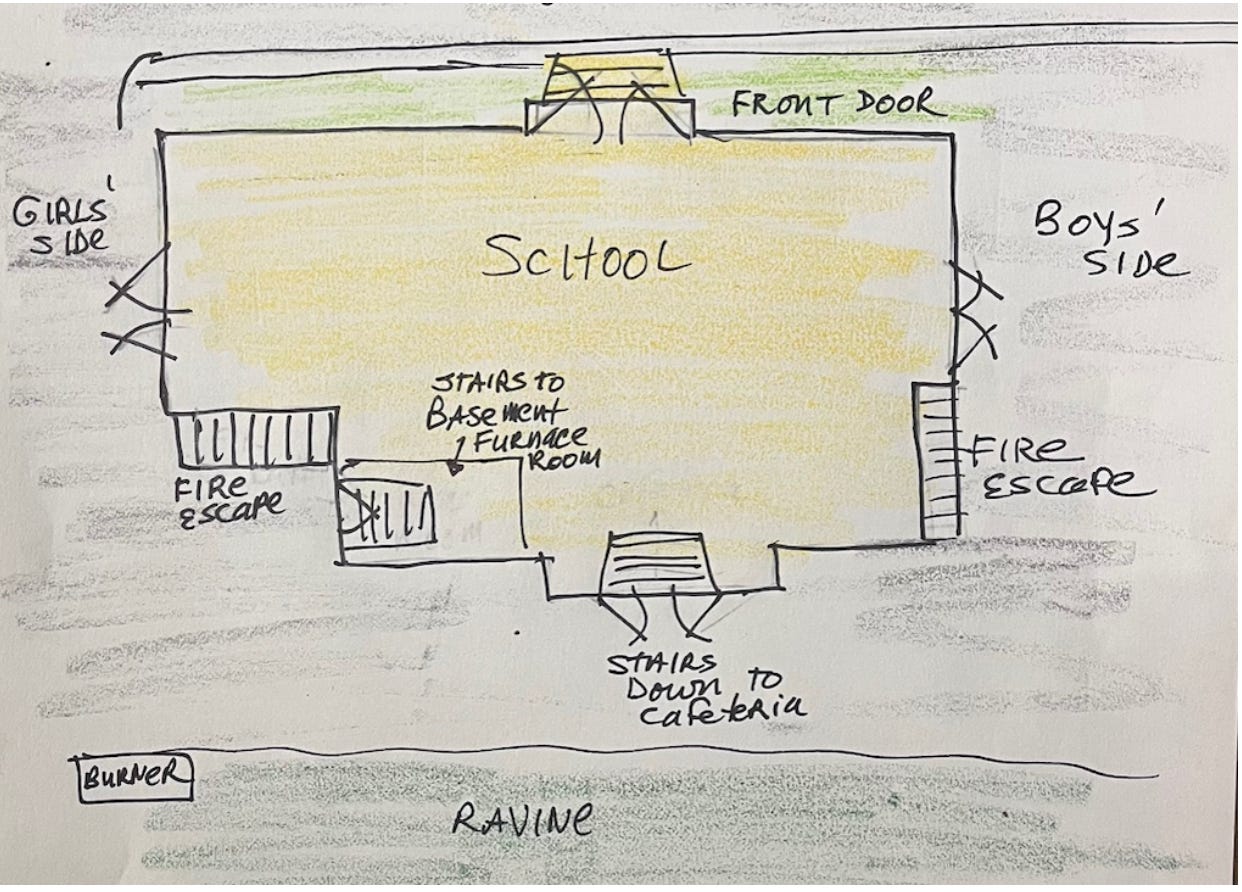 FRONT DOOR
GIRLS'
SIDE
BOYS'
SIDE
SCHOOL
STAIRS TO
BASEMENT
FURNACE
ROOM
FIRE
ESCAPE
FIRE
ESCAPE
STAIRS
DOWN TO
CAFETERIA
BURNER
RAVINE